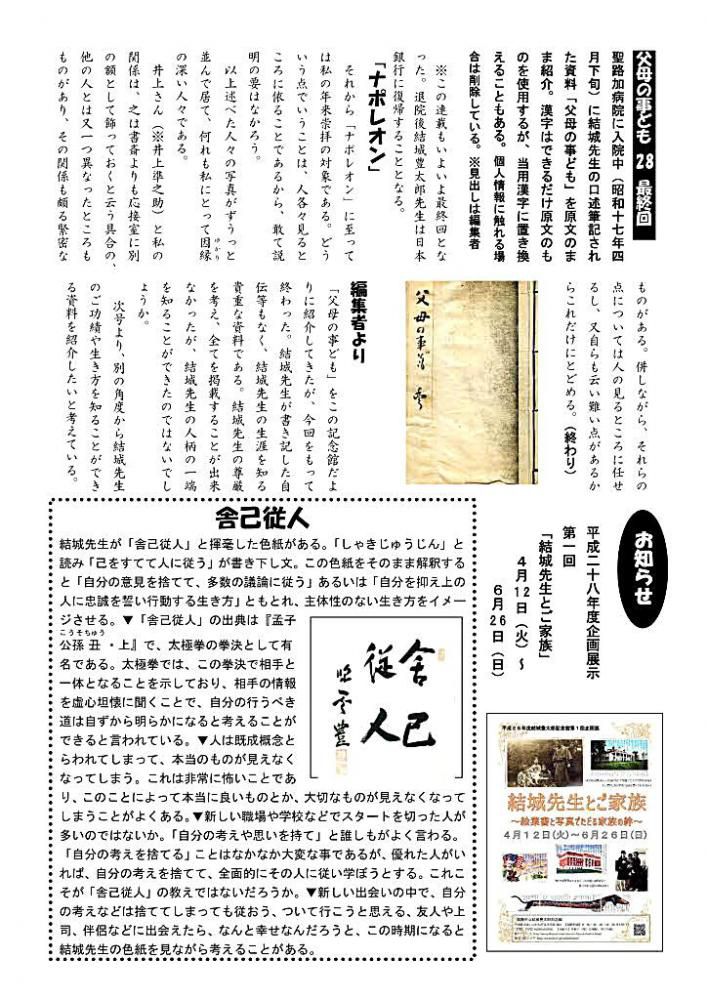 父母の事ども　28　最終回
聖路加病院に入院中（昭和十七年四
月下旬）に結城先生の口述筆記され
た資料「父母の事ども」を原文のま
ま紹介。漢字はできるだけ原文のも
のを使用するが、当用漢字に置き換
えることもある。個人情報に触れる場
合は削除している。※見出しは編集者
※この連載もいよいよ最終回とな
った。退院後結城豊太郎先生は日本
銀行に復帰することとなる。
「ナポレオン」
それから「ナポレオン」に至って
は私の年来崇拝の対象である。どう
いう点でいうことは、人各々見ると
ころに依ることであるから、敢て説
明の要はなかろう。
以上述べた人々の写真がずうっと
並んで居て、何れも私にとって因縁
ゆかり
の深い人々である。
井上さん（※井上準之助）と私の
関係は、之は書斎よりも応接室に別
の額として飾っておくと云う具合の、
他の人とは又一つ異なったところも
ものがあり、その関係も頗る緊密な
ものがある。併しながら、それらの
点については人の見るところに任せ
るし、又自らも云い難い点があるか
らこれだけにとどめる。（終わり）
父母の事ども
編集者より
「父母の事ども」をこの記念館だよ
りに紹介してきたが、今回をもって
終わった。結城先生が書き記した自
伝等もなく、結城先生の生涯を知る
貴重な資料である。結城先生の尊厳
を考え、全てを掲載することが出来
なかったが、結城先生の人柄の一端
を知ることができたのではないでし
ょうか。
次号より、別の角度から結城先生
のご功績や生き方を知ることができ
る資料を紹介したいと考えている。
お知らせ
平成二十八年度企画展示
第一回
「結城先生とご家族」
４月12日（火）～
６月26日（日）
平成２８年度結城豊太郎記念館第１回企画展
結城先生とご家族
～絵葉書と写真でたどる家族の絆～
４月１２日(火)～６月２６日(日)
舎己従人
結城先生が「舎己従人」と揮毫した色紙がある。「しゃきじゅうじん」と
読み「己をすてて人に従う」が書き下し文。この色紙をそのまま解釈する
と「自分の意見を捨てて、多数の議論に従う」あるいは「自分を抑え上の
人に忠誠を誓い行動する生き方」ともとれ、主体性のない生き方をイメー
ジさせる。▼「舎己従人」の出典は『孟子
こうそちゅう
公孫 丑 ・上』で、太極拳の拳決として有
名である。太極拳では、この拳決で相手と
一体となることを示しており、相手の情報
を虚心坦懐に聞くことで、自分の行うべき
道は自ずから明らかになると考えることが
できると言われている。▼人は既成概念と
らわれてしまって、本当のものが見えなく
なってしまう。これは非常に怖いことであ
り、このことによって本当に良いものとか、大切なものが見えなくなって
しまうことがよくある。▼新しい職場や学校などでスタートを切った人が
多いのではないか。「自分の考えや思いを持て」と誰しもがよく言われる。
「自分の考えを捨てる」ことはなかなか大変な事であるが、優れた人がい
れば、自分の考えを捨てて、全面的にその人に従い学ぼうとする。これこ
そが「舎己従人」の教えではないだろうか。▼新しい出会いの中で、自分
の考えなどは捨ててしまっても従おう、ついて行こうと思える、友人や上
司、伴侶などに出会えたら、なんと幸せなんだろうと、この時期になると
結城先生の色紙を見ながら考えることがある。
舎己
従人